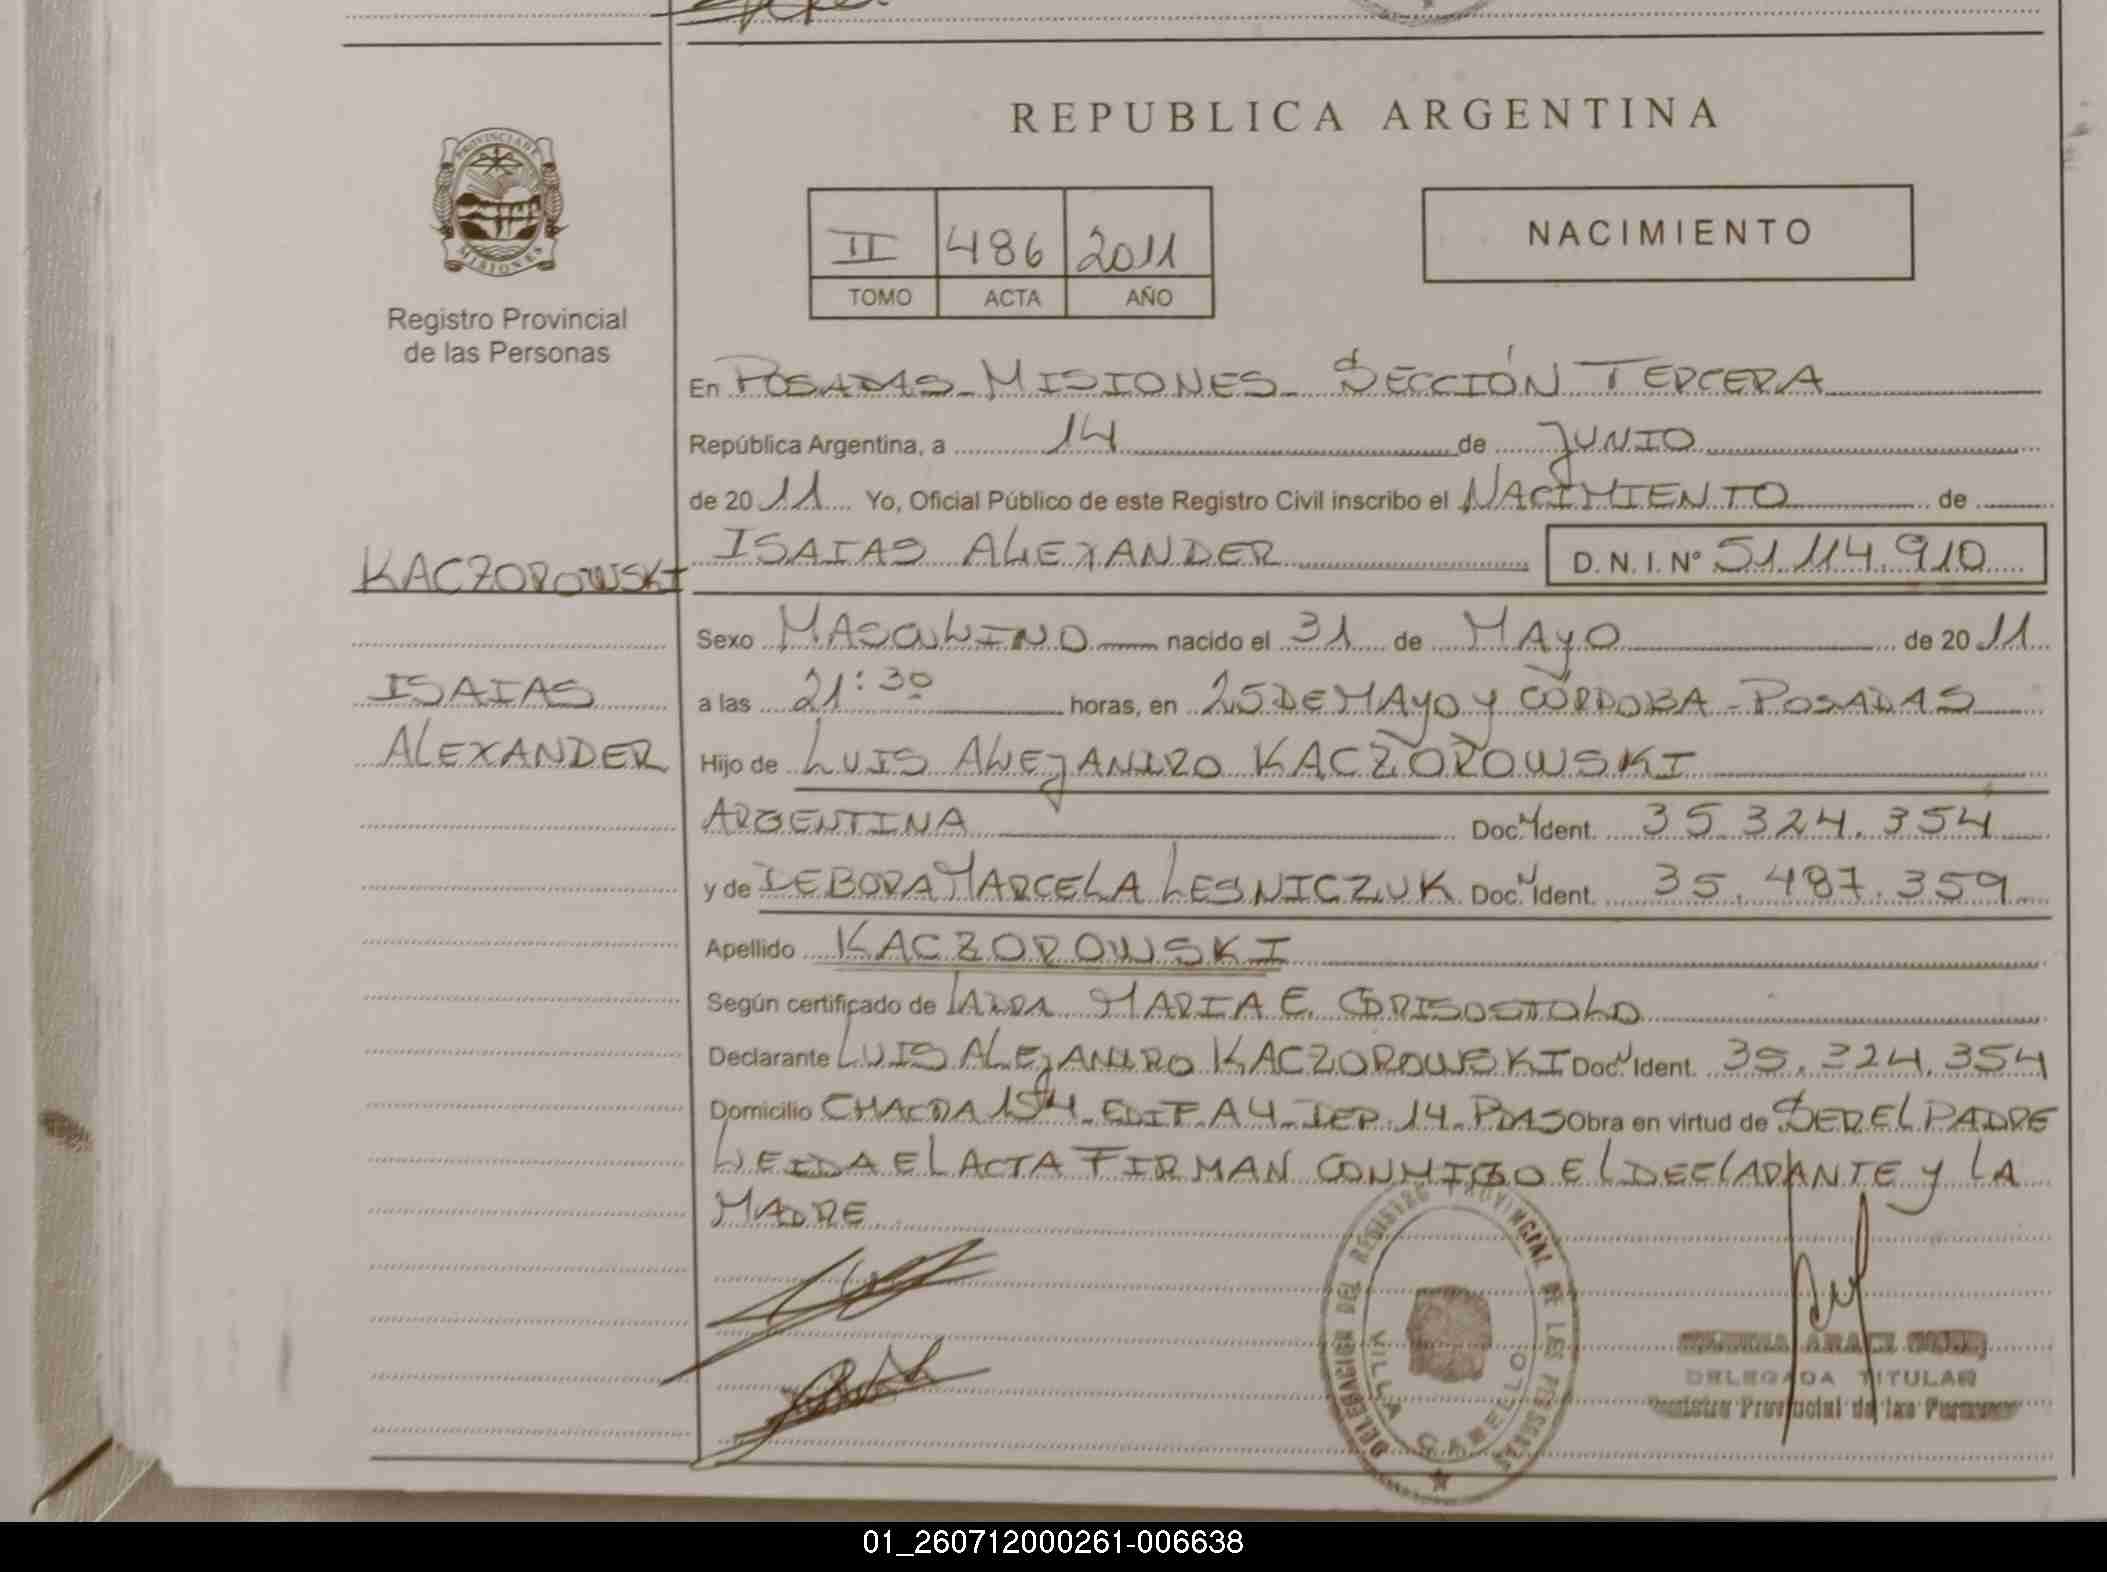 REPUBLICA ARGENTINA
PROVINCIA DE
MISIONES
Registro Provincial
de las Personas
II 486 2011
TOMO ACTA AÑO
NACIMIENTO
En POSADAS - MISIONES - SECCIÓN TERCERA
República Argentina, a 14 de JUNIO
de 2011 Yo, Oficial Público de este Registro Civil inscribo el NACIMIENTO de
KACZOROWSKI
ISAIAS ALEXANDER D.N.I.Nº 51.114.910
Sexo MASCULINO nacido el 31 de MAYO de 2011
ISAIAS
a las 21:30 horas, en 25 DE MAYO Y CÓRDOBA - POSADAS
ALEXANDER
Hijo de LUIS ALEJANDRO KACZOROWSKI
ARGENTINA Doc. Ident. 35.324.354
y de DEBORA MARCELA LESNICZUK Doc. Ident. 35.487.359
Apellido KACZOROWSKI
Según certificado de MARIA E.
Declarante LUIS ALEJANDRO KACZOROWSKI Doc. Ident. 35.324.354
Domicilio CHACRA 154 - EDIF. A4 - DEP. 14 - PDAS Obra en virtud de SER EL PADRE
LEIDA EL ACTA FIRMAN CONMIGO EL DECLARANTE Y LA
MADRE
DELEGACION DEL REGISTRO PROVINCIAL DE LAS PERSONAS
VILLA CABELLO
DELEGADA TITULAR
Registro Provincial de las Personas
01_260712000261-006638